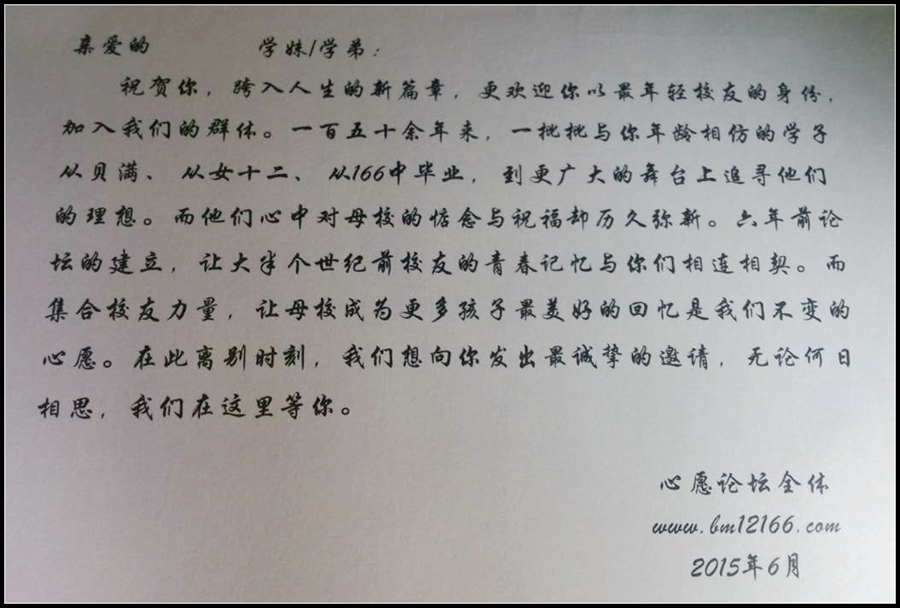 亲爱的 学妹/学弟：
祝贺你，跨入人生的新篇章，更欢迎你以最年轻校友的身份，
加入我们的群体。一百五十余年来，一批批与你年龄相仿的学子
从贝满、从女十二、从166中毕业，到更广大的舞台上追寻他们
的理想。而他们心中对母校的惦念与祝福却历久弥新。六年前论
坛的建立，让大半个世纪前校友的青春记忆与你们相连相契。而
集合校友力量，让母校成为更多孩子最美好的回忆是我们不变的
心愿。在此离别时刻，我们想向你发出最诚挚的邀请，无论何日
相思，我们在这里等你。
心愿论坛全体
www.bm12166.com
2015年6月